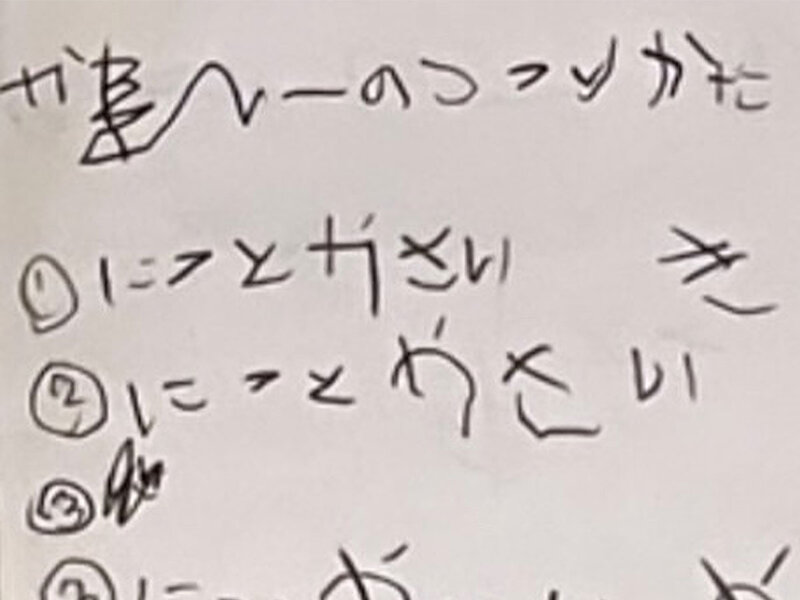 カレーのつくりかた
①にくとやさい き
②にくとやさい
③
③に